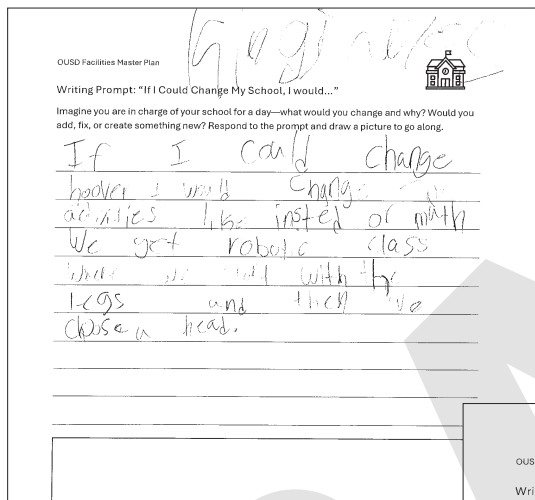 OUSD Facilities Master Plan
Writing Prompt: “If I Could Change My School, I would...”
Imagine you are in charge of your school for a day—what would you change and why? Would you
add, fix, or create something new? Respond to the prompt and draw a picture to go along.
If I Could change
hoover I would Chang
activities like insted or math
We get robotic class
where we with the
legs and then we
choose a head.
OUS
Wri